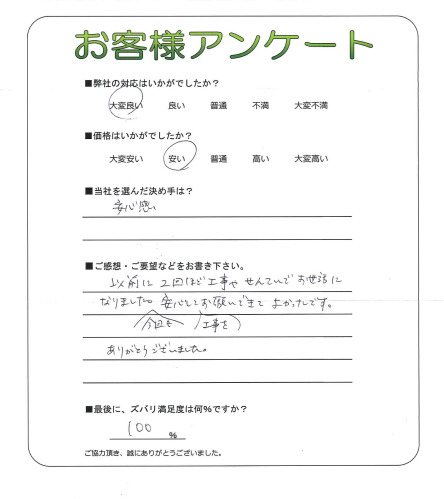 お客様アンケート
■弊社の対応はいかがでしたか？
大変良い 良い 普通 不満 大変不満
■価格はいかがでしたか？
大変安い 安い 普通 高い 大変高い
■当社を選んだ決め手は？
安心感
■ご感想・ご要望などをお書き下さい。
以前に2回ほど工事やせんていでお世話に
なりました。安心してお願いできてよかったです。
今回も 工事を
ありがとうございました。
■最後に、ズバリ満足度は何%ですか？
100 %
ご協力頂き、誠にありがとうございました。